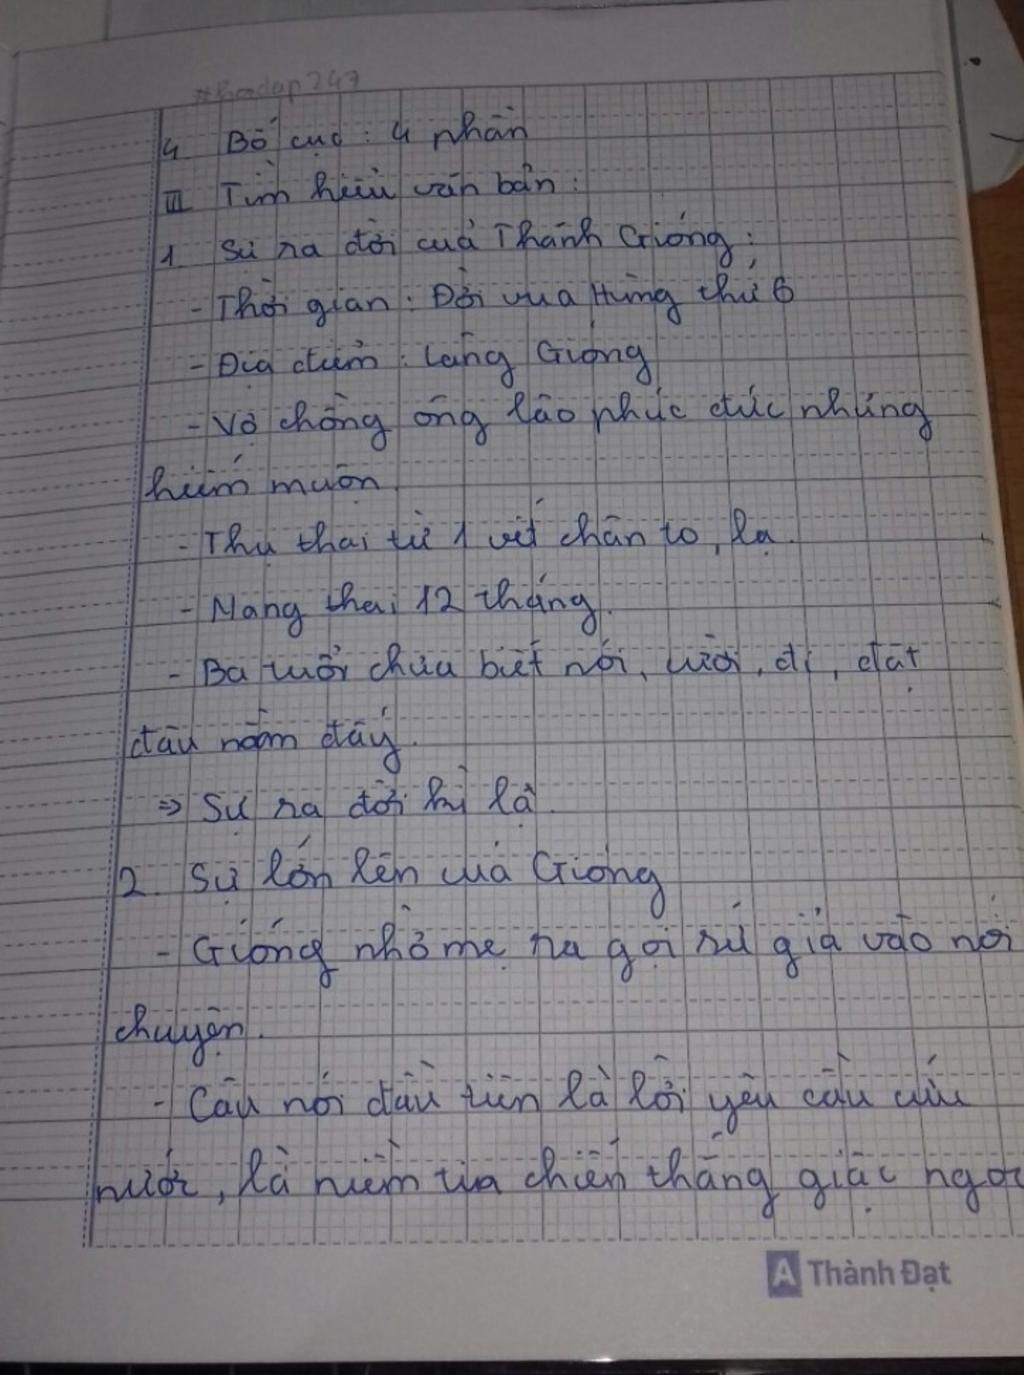 #hoidap247
4 Bố cục : 4 phần
III Tìm hiểu văn bản :
1 Sự ra đời của Thánh Gióng :
- Thời gian : Đời vua Hùng thứ 6
- Địa điểm : Làng Gióng
- Vợ chồng ông lão phúc đức nhưng
hiếm muộn.
- Thụ thai từ 1 vết chân to, lạ.
- Mang thai 12 tháng.
- Ba tuổi chưa biết nói, cười, đi, đặt
đâu nằm đấy.
⇒ Sự ra đời kì lạ.
2. Sự lớn lên của Gióng
- Gióng nhờ mẹ ra gọi sứ giả vào nói
chuyện.
- Câu nói đầu tiên là lời yêu cầu cứu
nước, là niềm tin chiến thắng giặc ngoạ
A Thành Đạt